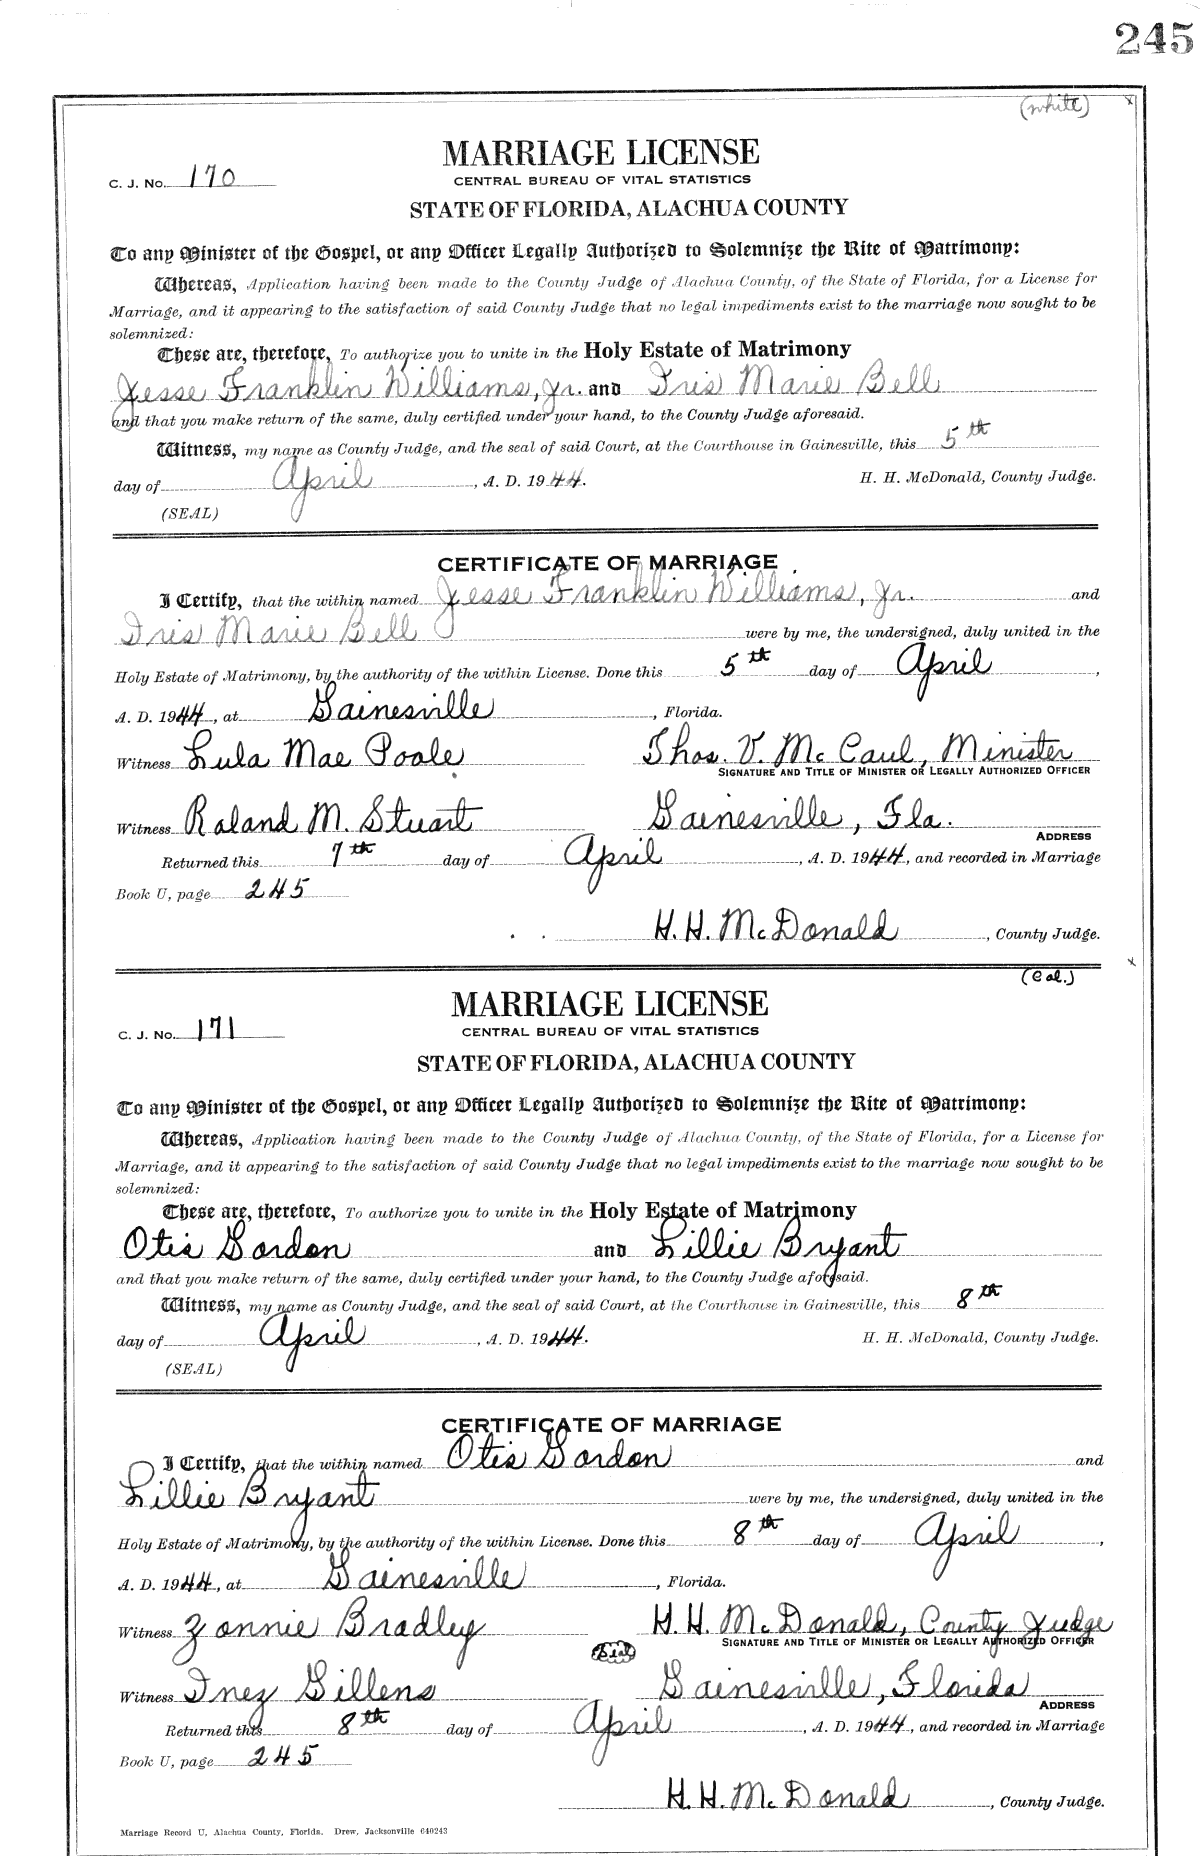 245
(white) x
MARRIAGE LICENSE
C. J. No. 170
CENTRAL BUREAU OF VITAL STATISTICS
STATE OF FLORIDA, ALACHUA COUNTY
To any Minister of the Gospel, or any Officer Legally Authorized to Solemnize the Rite of Matrimony:
Whereas, Application having been made to the County Judge of Alachua County, of the State of Florida, for a License for
Marriage, and it appearing to the satisfaction of said County Judge that no legal impediments exist to the marriage now sought to be
solemnized:
These are, therefore, To authorize you to unite in the Holy Estate of Matrimony
Jesse Franklin Williams, Jr. and Iris Marie Bell
and that you make return of the same, duly certified under your hand, to the County Judge aforesaid.
Witness, my name as County Judge, and the seal of said Court, at the Courthouse in Gainesville, this 5th
day of April, A. D. 1944. H. H. McDonald, County Judge.
(SEAL)
CERTIFICATE OF MARRIAGE
I Certify, that the within named Jesse Franklin Williams, Jr. and
Iris Marie Bell were by me, the undersigned, duly united in the
Holy Estate of Matrimony, by the authority of the within License. Done this 5th day of April,
A. D. 1944, at Gainesville, Florida.
Witness Lula Mae Poole Thos. V. McCaul, Minister
SIGNATURE AND TITLE OF MINISTER OR LEGALLY AUTHORIZED OFFICER
Witness Roland M. Stuart Gainesville, Fla.
ADDRESS
Returned this 7th day of April, A. D. 1944, and recorded in Marriage
Book U, page 245
H. H. McDonald, County Judge.
x
(Col.)
MARRIAGE LICENSE
C. J. No. 171
CENTRAL BUREAU OF VITAL STATISTICS
STATE OF FLORIDA, ALACHUA COUNTY
To any Minister of the Gospel, or any Officer Legally Authorized to Solemnize the Rite of Matrimony:
Whereas, Application having been made to the County Judge of Alachua County, of the State of Florida, for a License for
Marriage, and it appearing to the satisfaction of said County Judge that no legal impediments exist to the marriage now sought to be
solemnized:
These are, therefore, To authorize you to unite in the Holy Estate of Matrimony
Otis Gordon and Lillie Bryant
and that you make return of the same, duly certified under your hand, to the County Judge aforesaid.
Witness, my name as County Judge, and the seal of said Court, at the Courthouse in Gainesville, this 8th
day of April, A. D. 1944. H. H. McDonald, County Judge.
(SEAL)
CERTIFICATE OF MARRIAGE
I Certify, that the within named Otis Gordon and
Lillie Bryant were by me, the undersigned, duly united in the
Holy Estate of Matrimony, by the authority of the within License. Done this 8th day of April,
A. D. 1944, at Gainesville, Florida.
Witness Zonnie Bradley H. H. McDonald, County Judge
SIGNATURE AND TITLE OF MINISTER OR LEGALLY AUTHORIZED OFFICER
Seal
Witness Inez Gillens Gainesville, Florida
ADDRESS
Returned this 8th day of April, A. D. 1944, and recorded in Marriage
Book U, page 245
H. H. McDonald, County Judge.
Marriage Record U, Alachua County, Florida. Drew, Jacksonville 640243